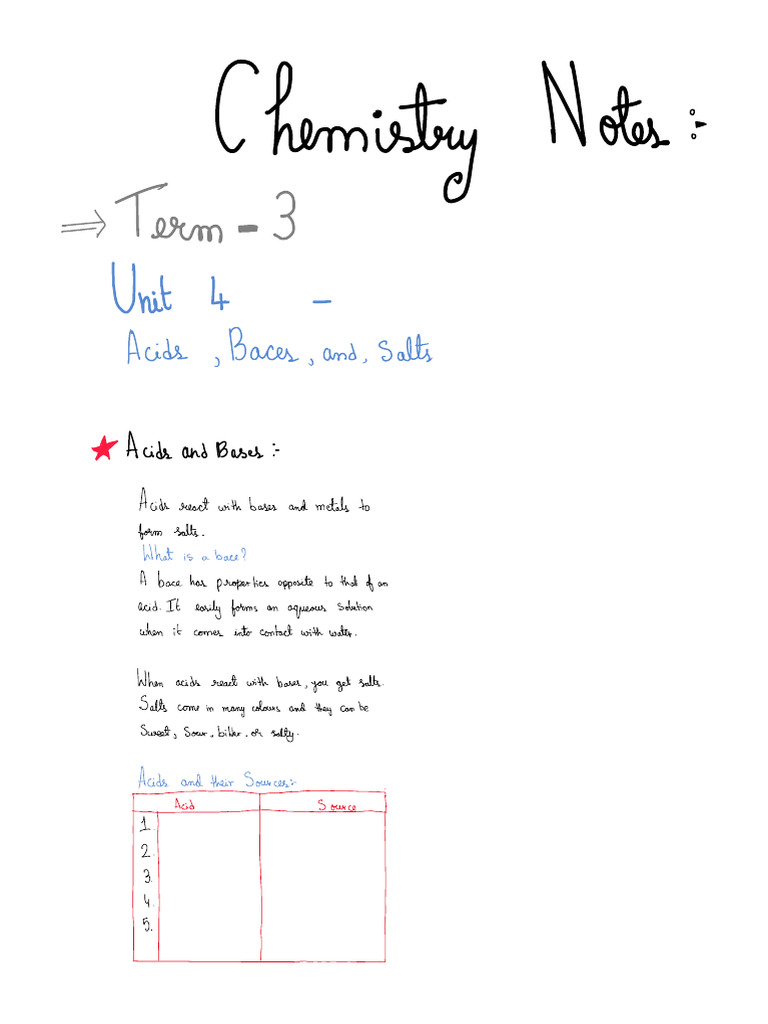 Chemistry Notes :-
⇒ Term - 3
Unit 4 -
Acids , Baces , and , Salts
★ Acids and Bases :-
Acids react with bases and metals to
form salts.
What is a bace?
A bace has properties opposite to that of an
acid. It easily forms an aqueous solution
when it comes into contact with water.
When acids react with bases, you get salts.
Salts come in many colours and they can be
Sweet, Sour, bitter, or salty.
Acids and their Sources:-
Acid Source
1.
2.
3.
4.
5.